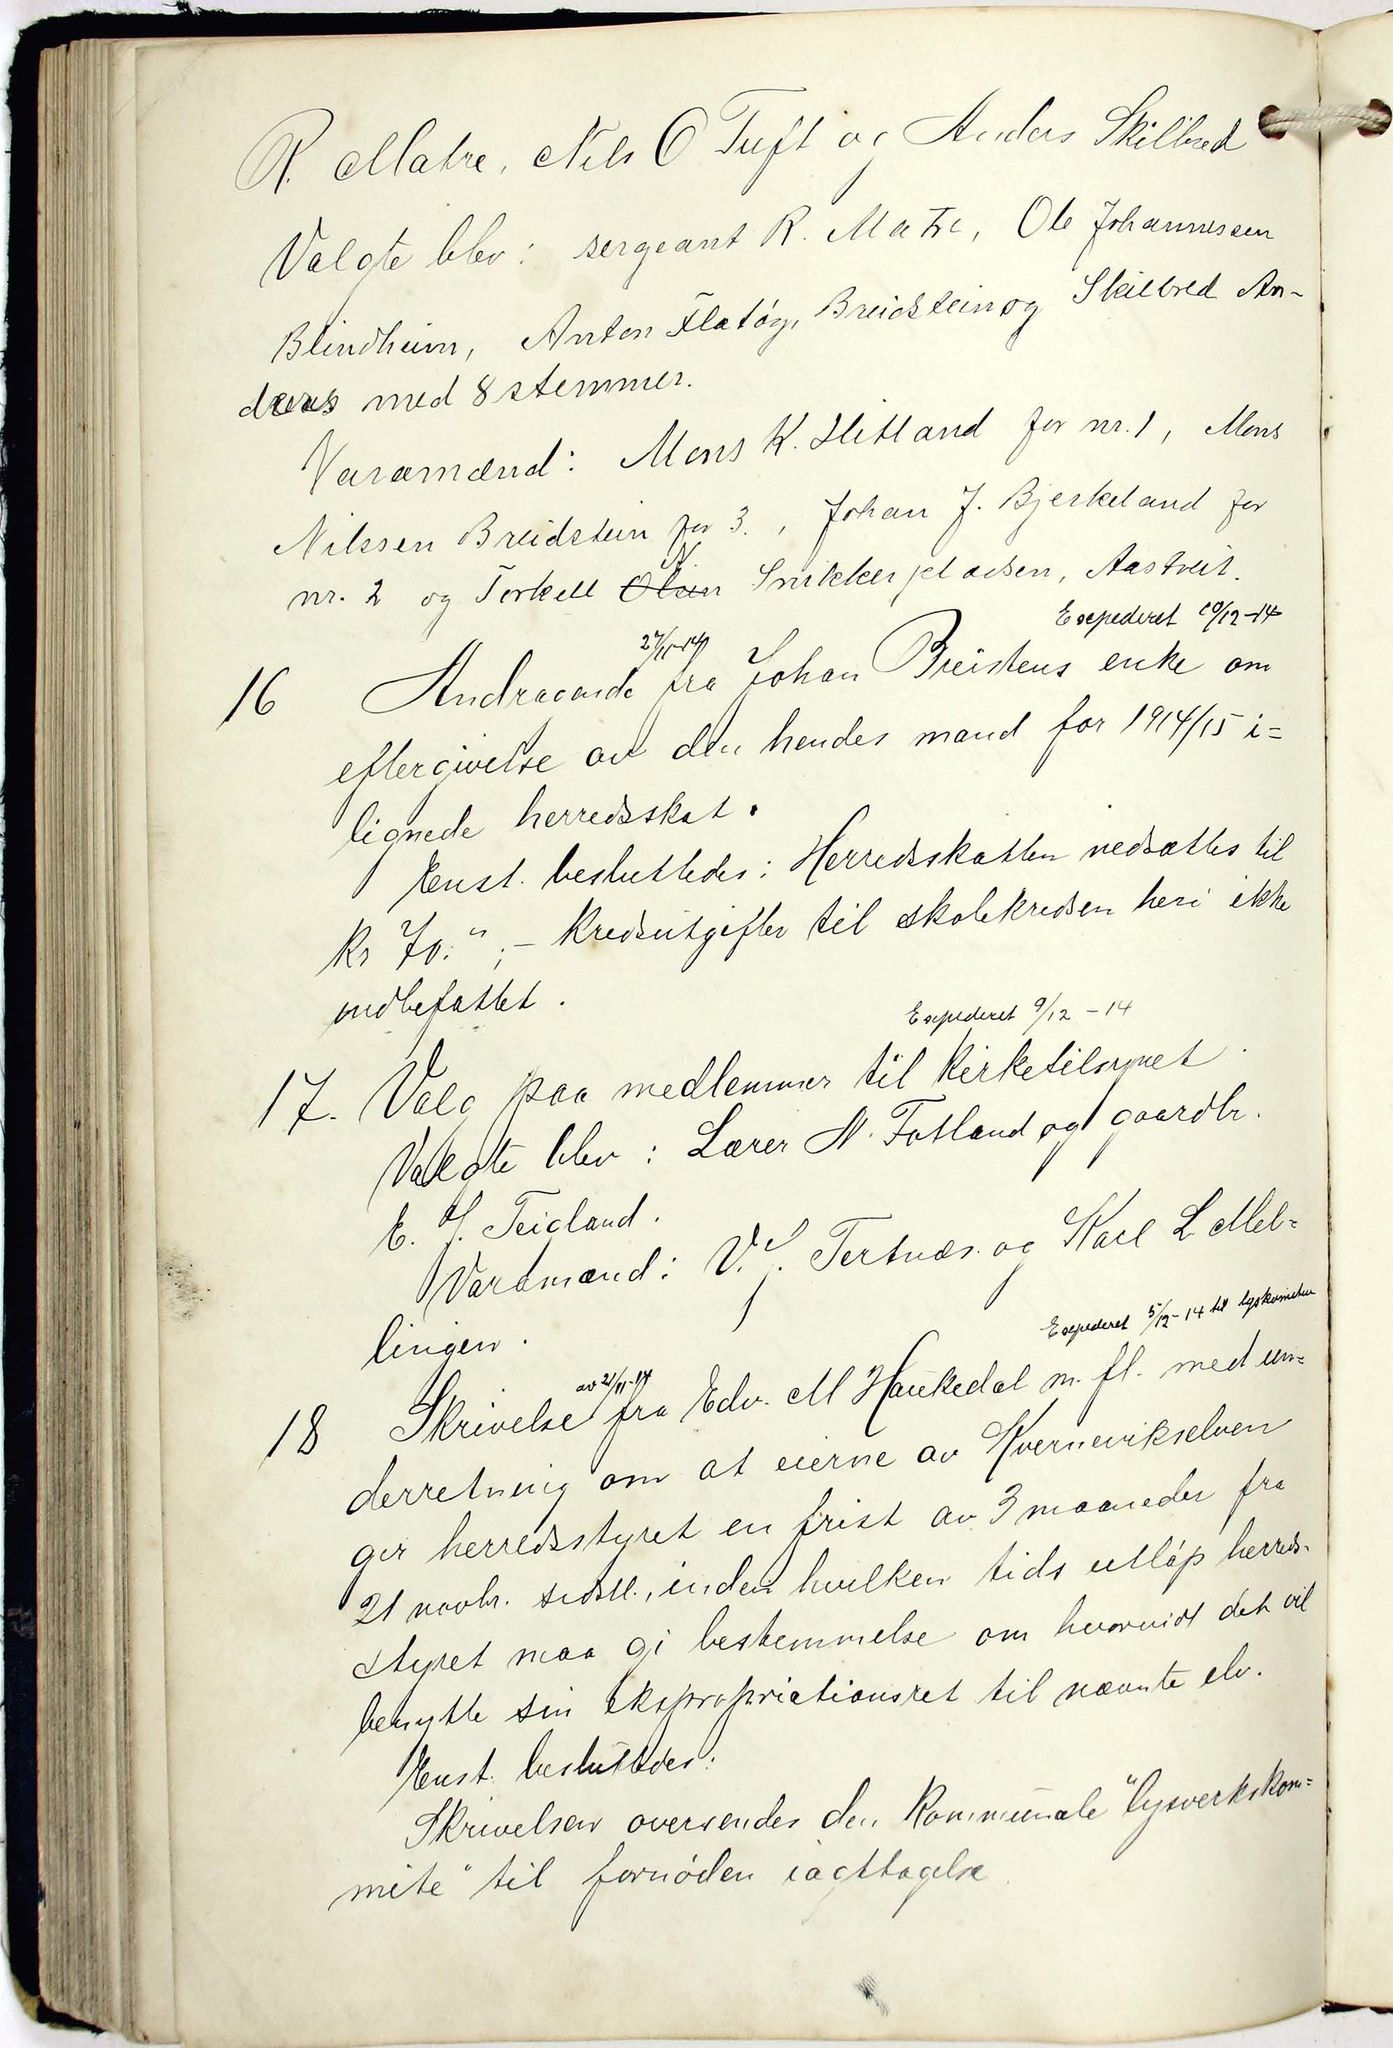 R. Matre, Nils O Tuft og Anders Skilbred
Valgte blev: sergeant R. Matre, Ole Johannessen
Blindheim, Anton Flatøy, Breidstein og Skilbred An-
ders med 8 stemmer.
Varamænd: Mons K. Hitland for nr. 1, Mons
Nilssen Breidstein for 3., Johan J. Bjerkeland for
N.
nr. 2 og Torkell Olsen Snikkerpladsen, Aastveit.
Expederet 10/12-14
27/11-14
16 Andragende fra Johan Breistens enke om
eftergivelse av den hendes mand for 1914/15 i=
lignede herredsskat.
Enst. besluttedes: Herredsskatten nedsættes til
kr 70."; - Kredsutgifter til skolekredsen heri ikke
indbefattet.
Expederet 9/12-14
17. Valg paa medlemmer til Kirketilsynet.
Valgte blev: Lærer N. Fotland og gaardbr.
E. J. Teigland.
Varamænd: V. J. Tertnæs og Karl L. Mel=
lingen.
Expederet 5/12-14 til lyskomiteen
av 21/11-14
18 Skrivelse fra Edv. M Haukedal m. fl. med un=
derretning om at eierne av Kvernevikselven
gir herredsstyret en frist av 3 maaneder fra
21 novbr. sidstl., inden hvilken tids utløp herreds-
styret maa gi bestemmelse om hvorvidt det vil
benytte sin ekspropriationsret til nævnte elv.
Enst. besluttedes:
Skrivelsen oversendes den kommunale "lysverkskom=
mite" til fornøden iagttagelse